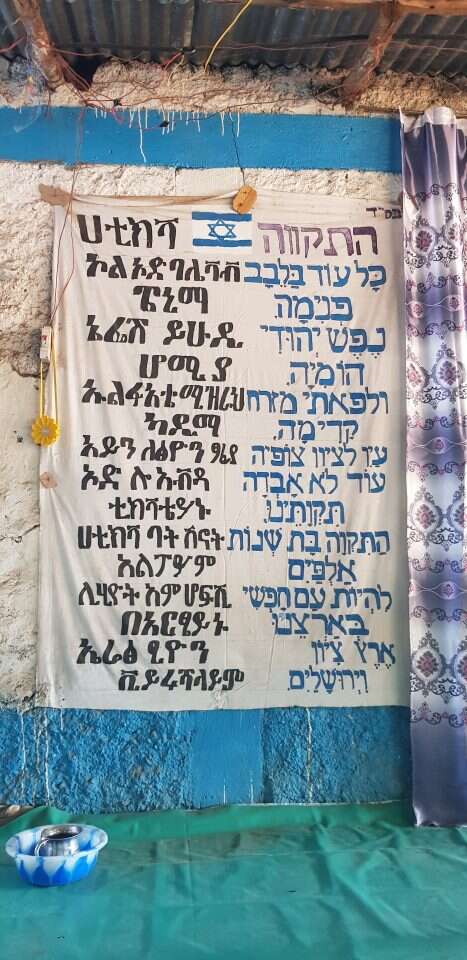 בס"ד
ሀቲክቫ
ኦል ኦድ ባሊቫቭ
ፔኒማ
ኔፌሽ ይሁዲ.
ሆሚ ያ
ኡልፋአቲ ሚዝራህ
ካዲማ
አይን ለፅዮን ፃፊያ
ኦድ ሎ አቭዳ
ቲክቫቴይኑ
ሀቲክቫ ባት ሽኖት
አልፓይም
ሊሂዮት አም ሆፍሺ
በአርፂይኑ
ኤሬፅ ፂዮን
ቪይሩሻላይም
התקווה
כָּל עוֹד בַּלֵּבָב
פְּנִימָה,
נֶפֶשׁ יְהוּדִי
הוֹמִיָּה,
ולפאתי מזרח
קָדִימָה,
עַיִן לְצִיּוֹן צוֹפִיָּה
עוֹד לֹא אָבְדָה
תִּקְוָתֵינוּ,
הַתִּקְוָה בַּת שְׁנוֹת
אַלְפַּיִם
לִהְיוֹת עַם חָפְשִׁי
בְּאַרְצֵנוּ
אֶרֶץ צִיּוֹן
וִירוּשָׁלַיִם.